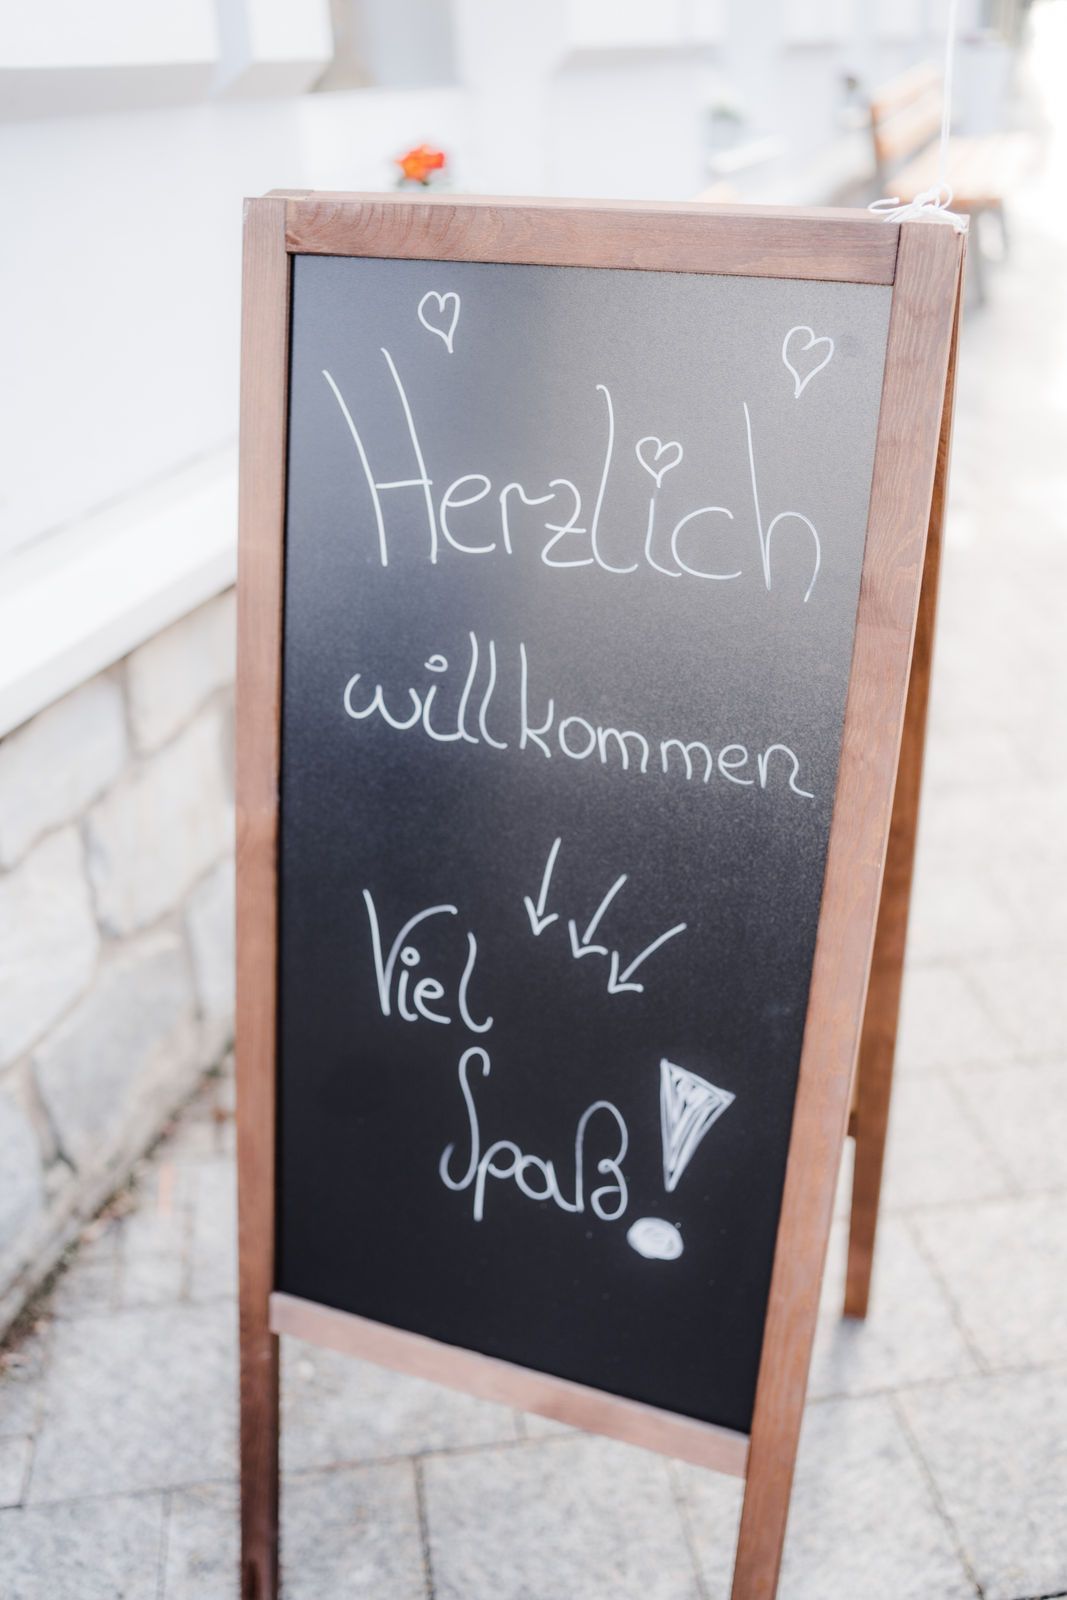 Herzlich
willkommen
Viel
Spaß!